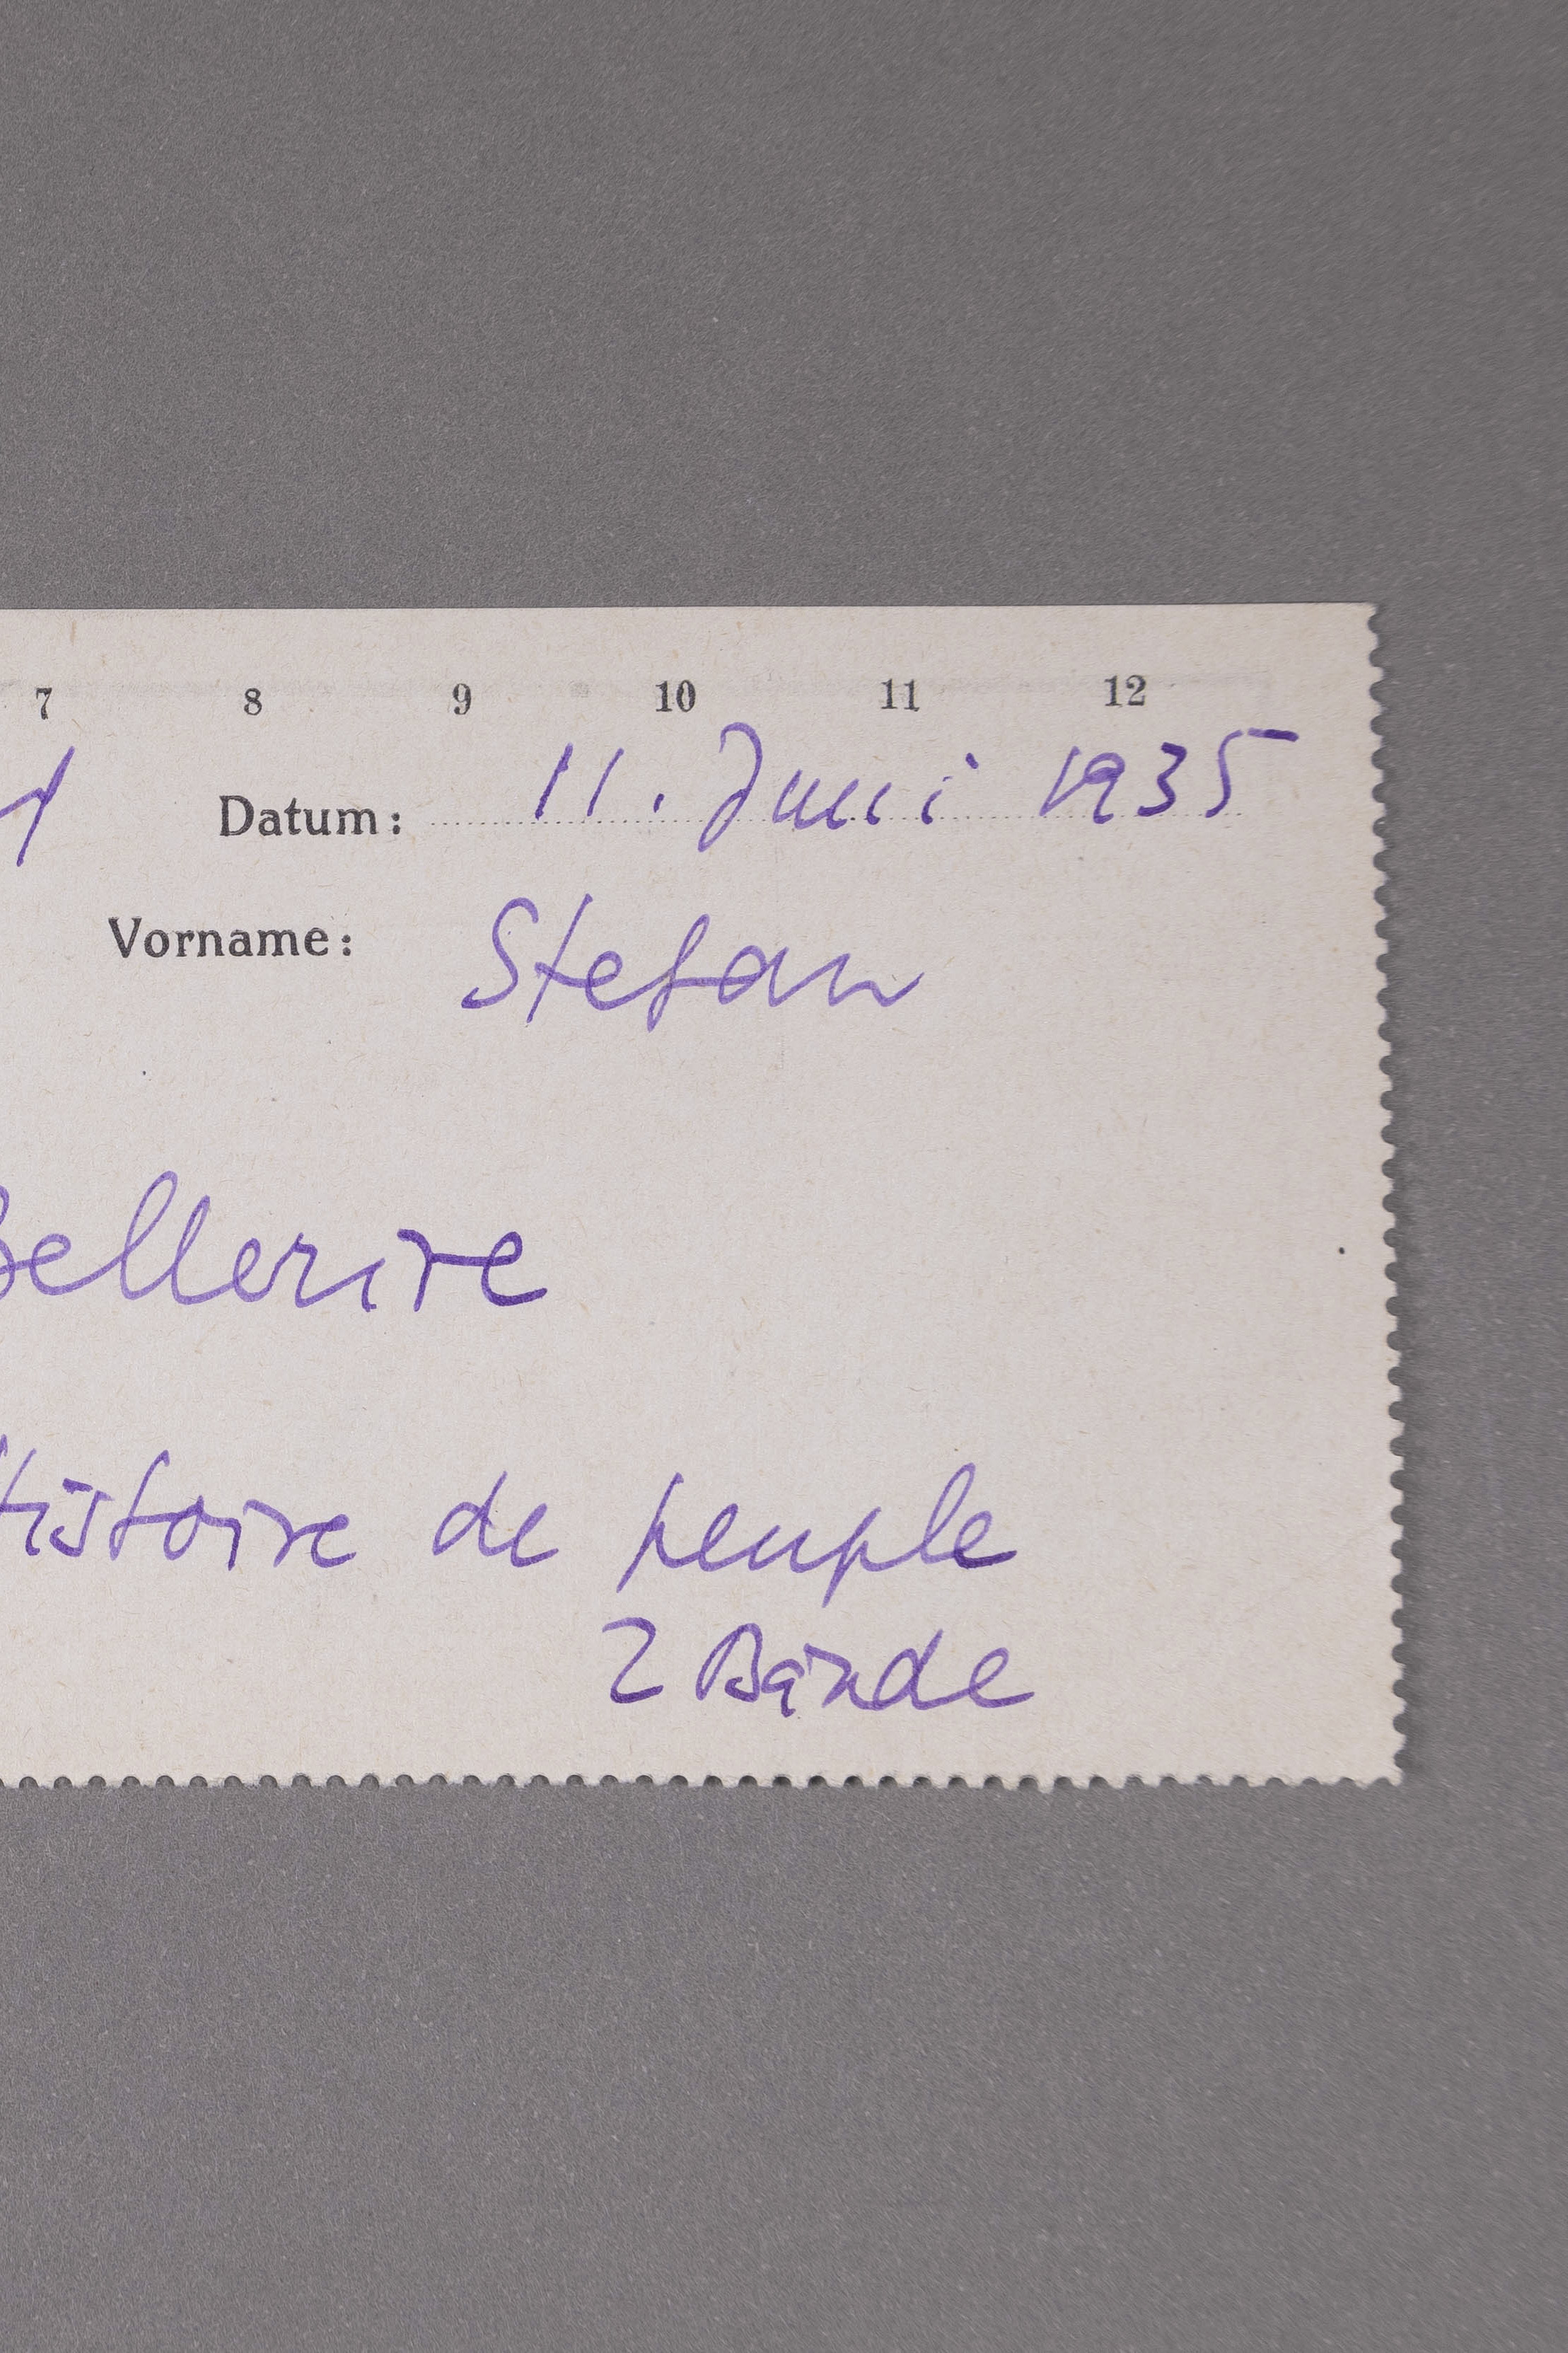 7 8 9 10 11 12
Datum: 11. Juni 1935
Vorname: Stefan
Bellerive
Histoire de peuple
2 Bände